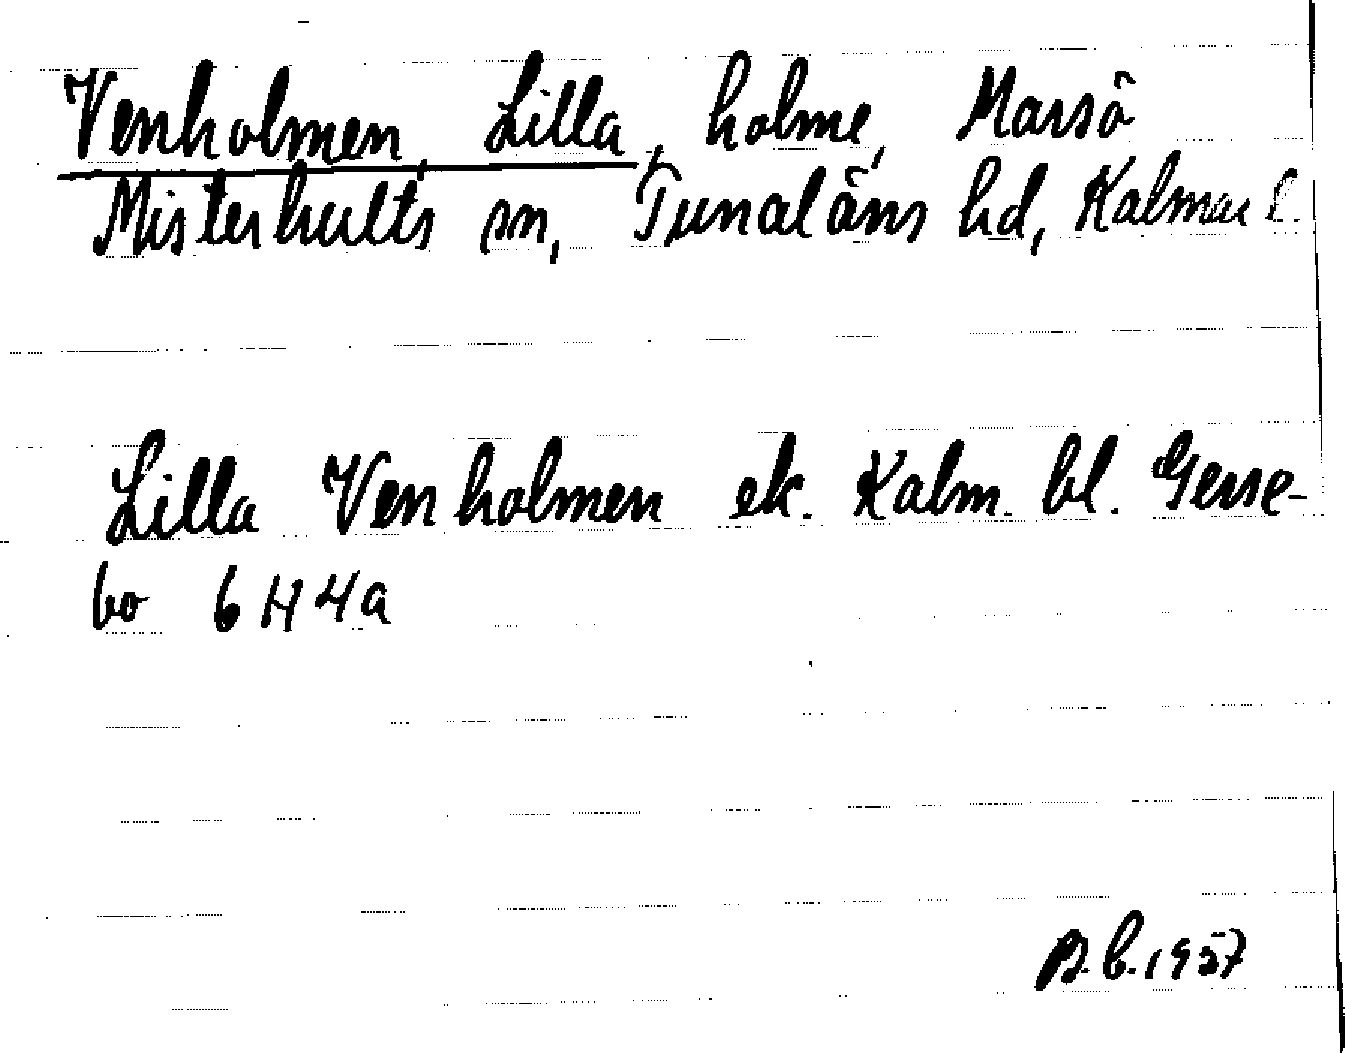 Venholmen, Lilla, holme, Marsö
Misterhults sn, Tunaläns hd, Kalmar l.
Lilla Venholmen ek. Kalm. bl. Gerse-
bo 6H4a
B.b. 1957